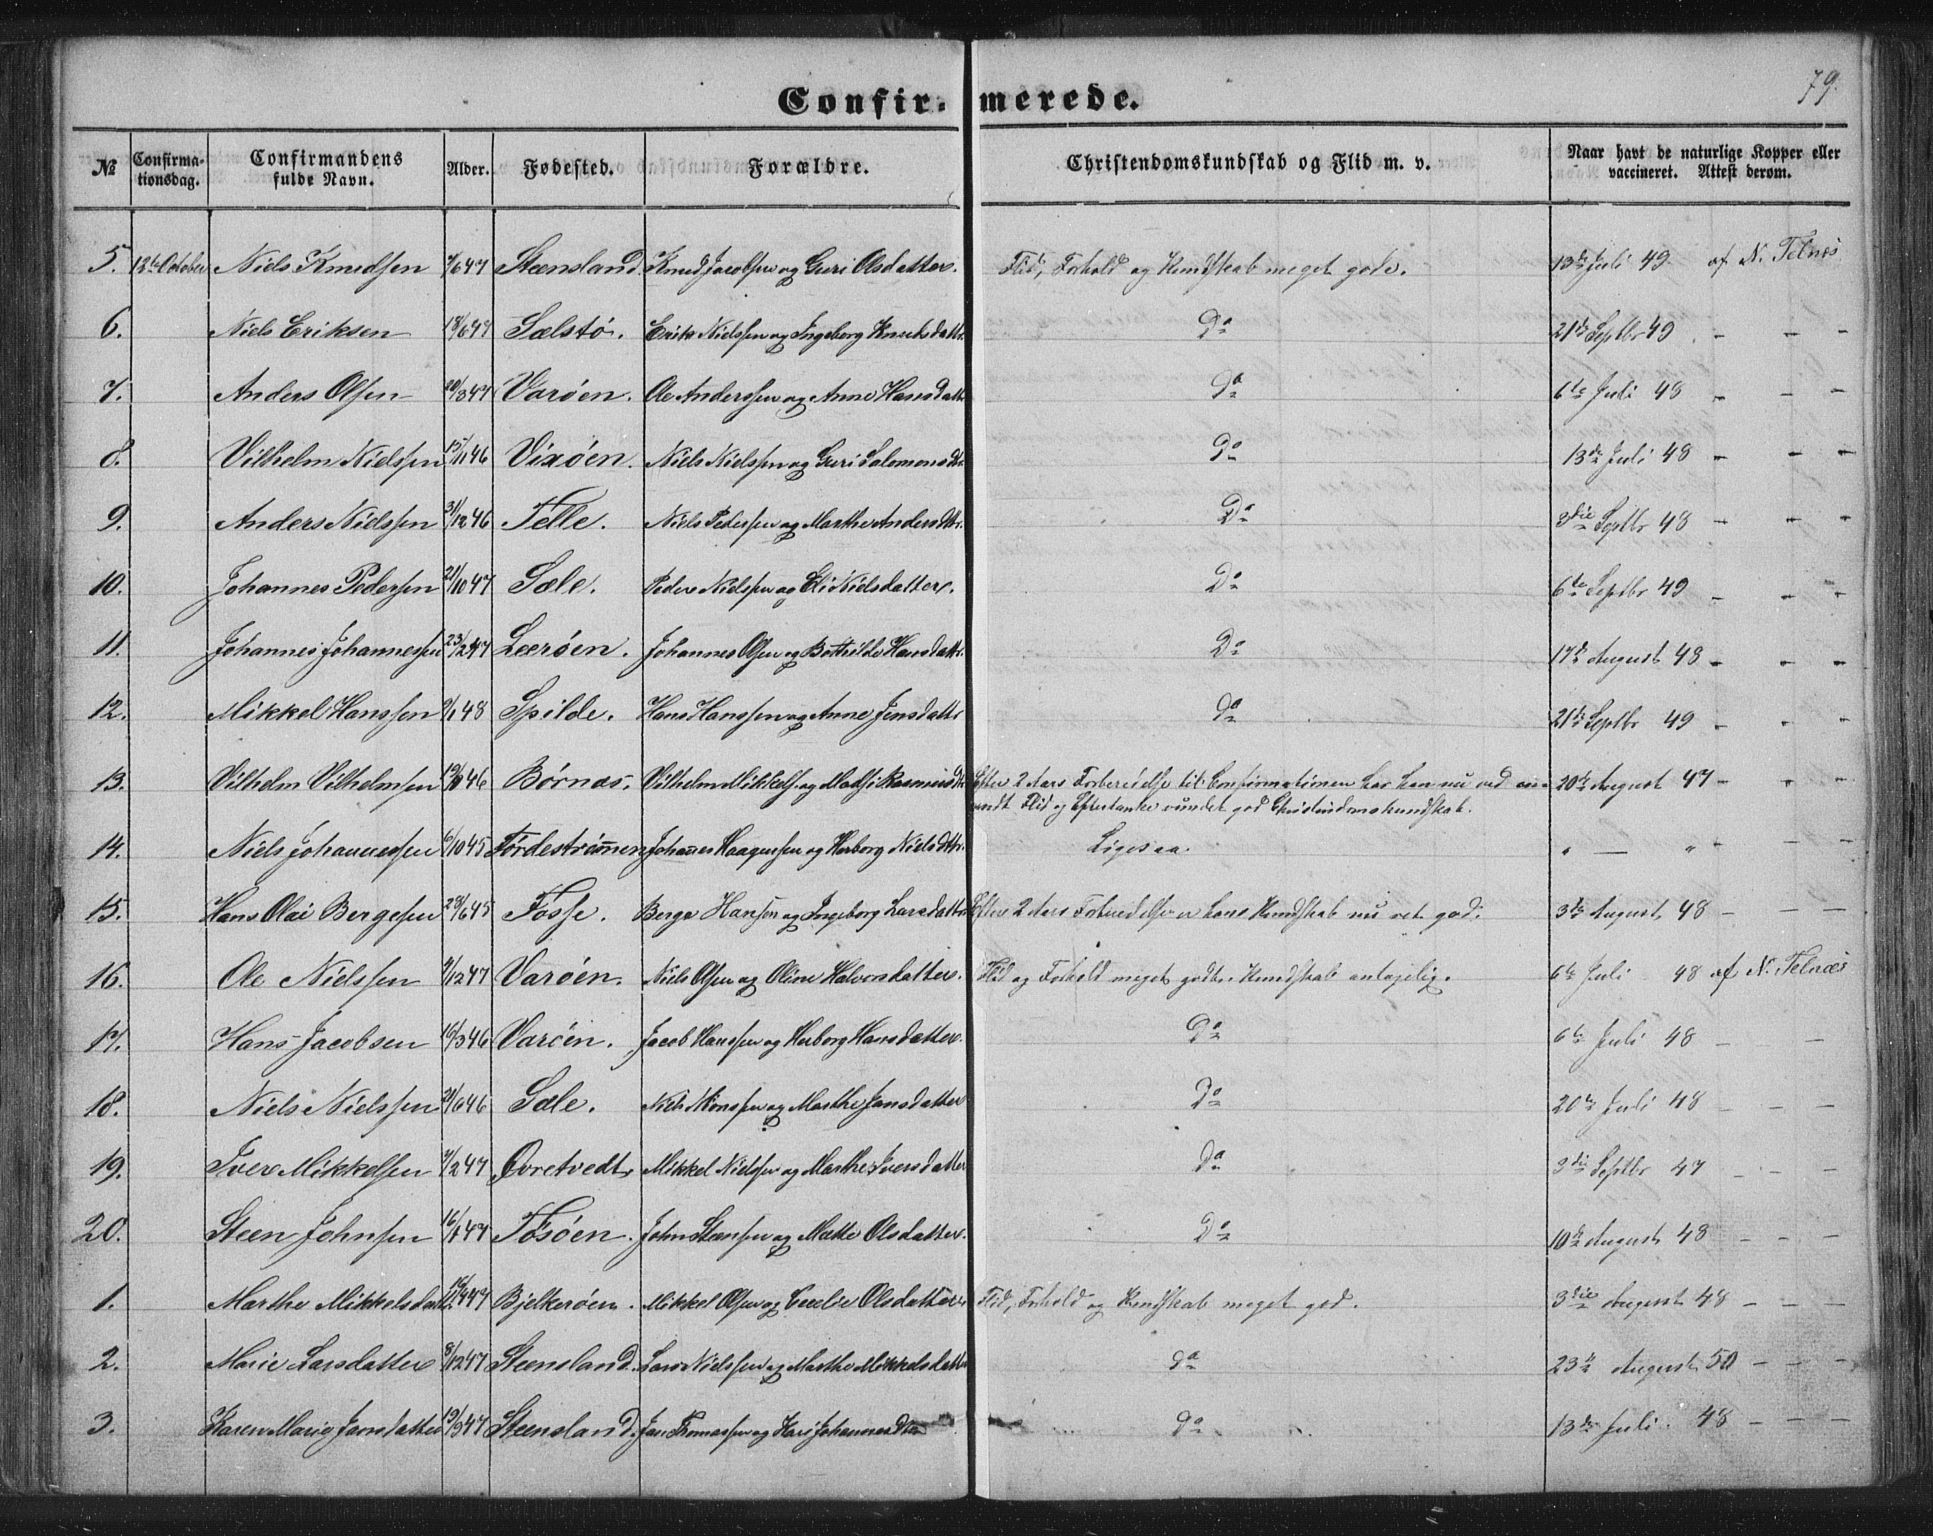 79.
Confirmerede.
№ Confirmationsdag. Confirmandens fulde Navn. Alder. Fødested. Forældre. Christendomskundskab og Flid m. v. Naar havt de naturlige Kopper eller vaccineret. Attest derom.
5. 12te October Niels Knudsen 7/6 47 Steensland. Knud Jacobsen og Guri Olsdatter. Flid, Forhold og Kundskab meget gode. 13de Juli 49 af N. Telnæs
6. Niels Eriksen 18/6 47 Sælstø. Erik Nielssen og Ingeborg Knudsdattr. Do 21de Septbr 49 - - -
7. Anders Olsen 20/3 47 Varøen. Ole Anderssen og Anne Hansdattr Do 6te Juli 48 - - -
8. Vilhelm Nielssen 15/11 46 Vixøen. Niels Nielssen og Guri Salomonsdtr. Do 13de Juli 48 - - -
9. Anders Nielssen 31/12 46 Telle. Niels Pedersen og Marthe Andersdttr. Do 3die Septbr 48 - - -
10. Johannes Pedersen 21/10 47 Sæle. Peder Nielssen og Eli Nielsdatter. Do 6te Septbr 49 - - -
11. Johannes Johannessen 23/2 47 Leerøen. Johannes Olsen og Bothilde Hansdattr. Do 17de August 48 - - -
12. Mikkel Hanssen 9/1 48 Spilde. Hans Hanssen og Anne Jensdattr Do 21de Septbr 49 - - -
13. Vilhelm Vilhelmsen 46 Børnæs. Vilhelm Mikkels. og Madsi Rasmusdtr Efter 2 Aars Forberedelse til Confirmationen har han nu ved an-
vendt Flid og Eftertanke vundet god Christendomskundskab. 20de August 47 - - -
14. Niels Johannessen 6/10 45 Førdestrømmen Johannes Haagenssen og Herborg Nielsdttr. Ligesaa. " — " - - -
15. Hans Olai Bergesen 28/6 45 Fosse. Berge Hansen og Ingeborg Larsdatter Efter 2 Aars Forberedelse er hans Kundskab nu ret god. 3die August 48 - - -
16. Ole Nielssen 9/12 47 Varøen. Niels Olsen og Oline Halvorsdatter. Flid og Forhold meget godt. Kundskab antagelig. 6te Juli 48 af N. Telnæs
17. Hans Jacobsen 16/3 46 Varøen. Jacob Hanssen og Herborg Hansdatter. Do 6te Juli 48 - -
18. Niels Nielssen 21/6 46 Sæle. Niels Monssen og Marthe Jansdatter Do 20de Juli 48 - - -
19. Iver Mikkelsen 7/2 47 Øvretvedt. Mikkel Nielssen og Marthe Iversdatter Do 3die Septbr 47 - - -
20. Steen Johnsen 16/1 47 Føsøen. John Steensen og Mette Olsdatter. Do 10de August 48 - - -
1. Marthe Mikkelsdatter 47 Bjelkerøen. Mikkel Olsen og Cecelie Olsdatter. Flid, Forhold og Kundskab meget god. 3die August 48 - - -
2. Marie Larsdatter 8/12 47 Steensland. Lars Nielssen og Marthe Mikkelsdatter Do 23de August 50 - - -
3. Karen Marie Jansdatter 19/9 47 Steensland. Jan Thomassen og Kari Johannesdtr Do 13de Juli 48 - - -